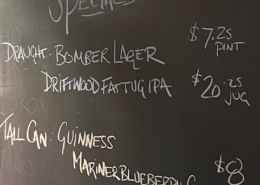 SPECIALS
DRAUGHT: BOMBER LAGER $7.25 PINT
DRIFTWOOD FAT TUG IPA $20.25 JUG
TALL CAN: GUINNESS
MARINER BLUEBERRY $8